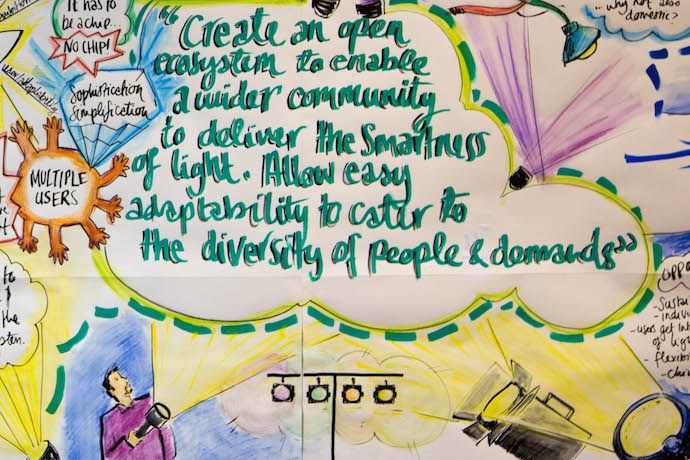 It has to
be a chip...
NO CHIP!
Sophistication
Simplification
MULTIPLE
USERS
"Create an open
ecosystem to enable
a wider community
to deliver the Smartness
of light. Allow easy
adaptability to cater to
the diversity of people & demands"
why not also
domestic?
to
the